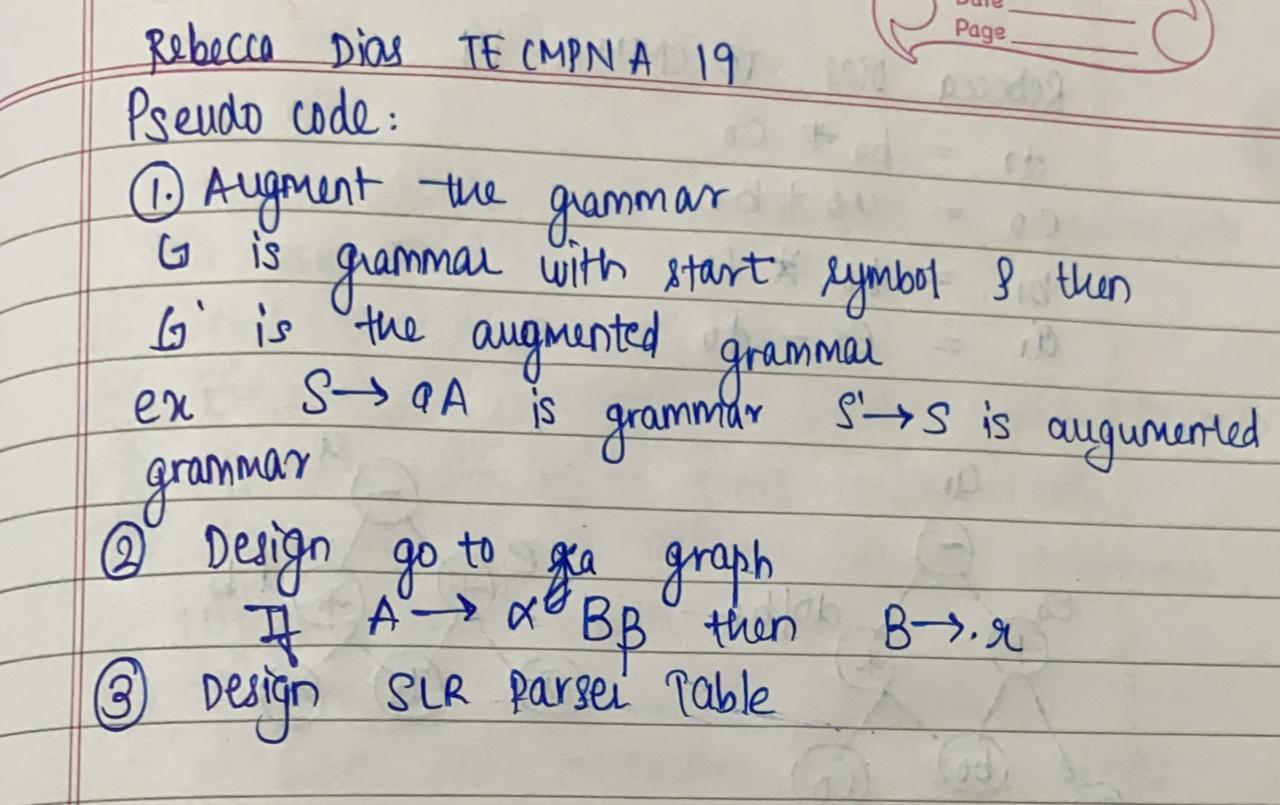 Date
Page
Rebecca Dias TE CMPN A 19
Pseudo code:
①. Augment the grammar
G is grammar with start symbol S then
G' is the augmented grammar
ex S→aA is grammar S'→S is augumented
grammar
② Design go to graph
If A→α Bβ then B→.r
③ Design SLR Parser Table